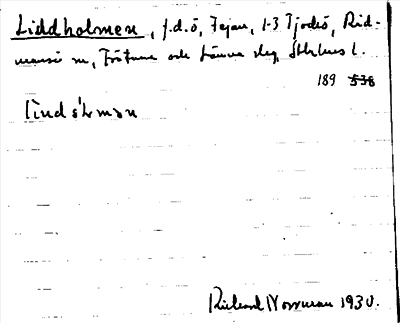 Liddholmen, f.d. ö, Fejan, 1-3 Tjockö, Råd-
mansö sn, Frötuna och Länna slg, Sthlms l.
189 538
Richard Norrman 1930.